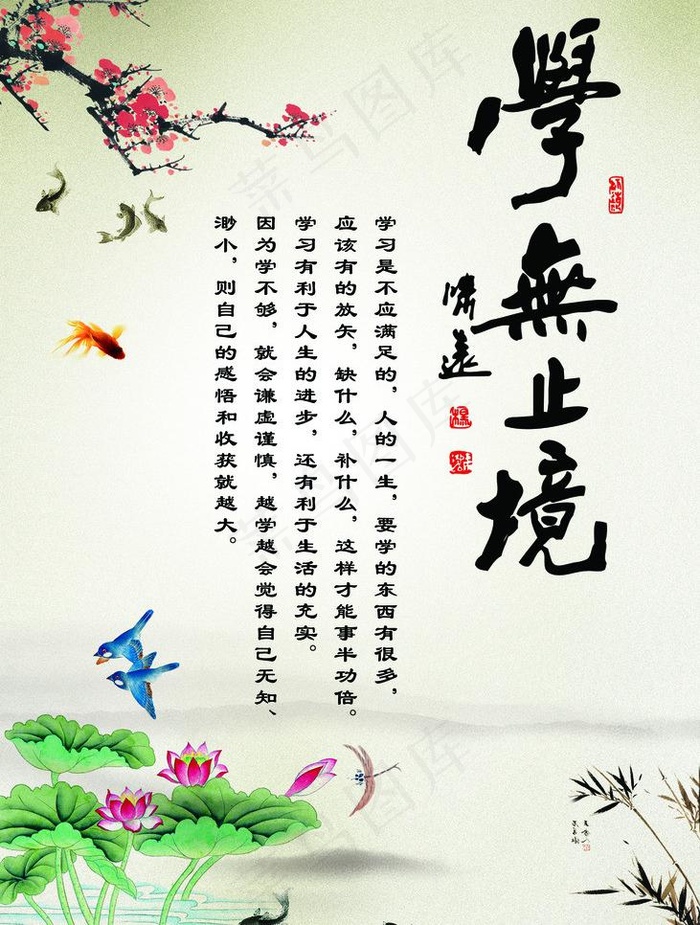 學無止境
啸遠
学习是不应满足的，人的一生，要学的东西有很多，
应该有的放矢，缺什么，补什么，这样才能事半功倍。
学习有利于人生的进步，还有利于生活的充实。
因为学不够，就会谦虚谨慎，越学越会觉得自己无知、
渺小，则自己的感悟和收获就越大。
菜鸟图库